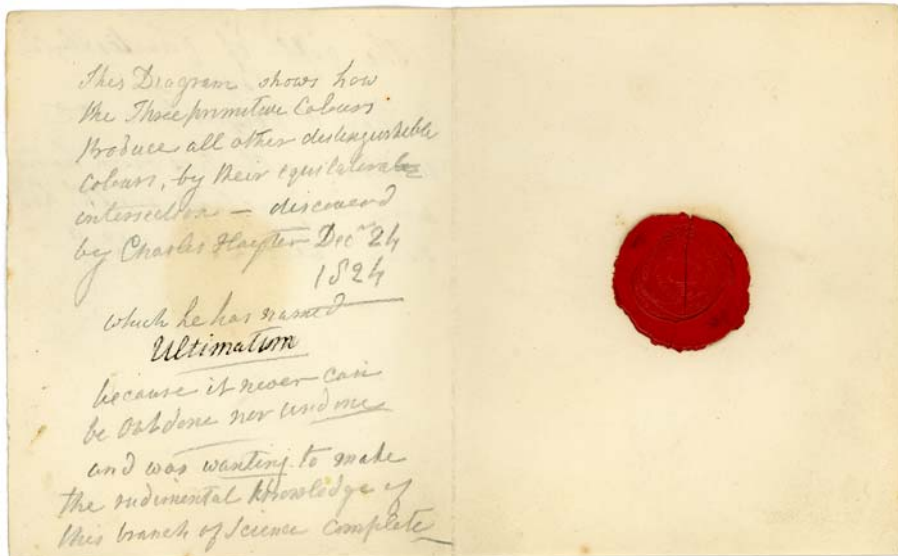 This Diagram shows how
the Three primitive Colours
produce all other distinguishable
Colours, by their equilateral
intersection — discovered
by Charles Hayter Decr 24
1824
which he has named
Ultimatum
because it never can
be outdone nor undone
and was wanting to make
the rudimental knowledge of
this branch of Science complete